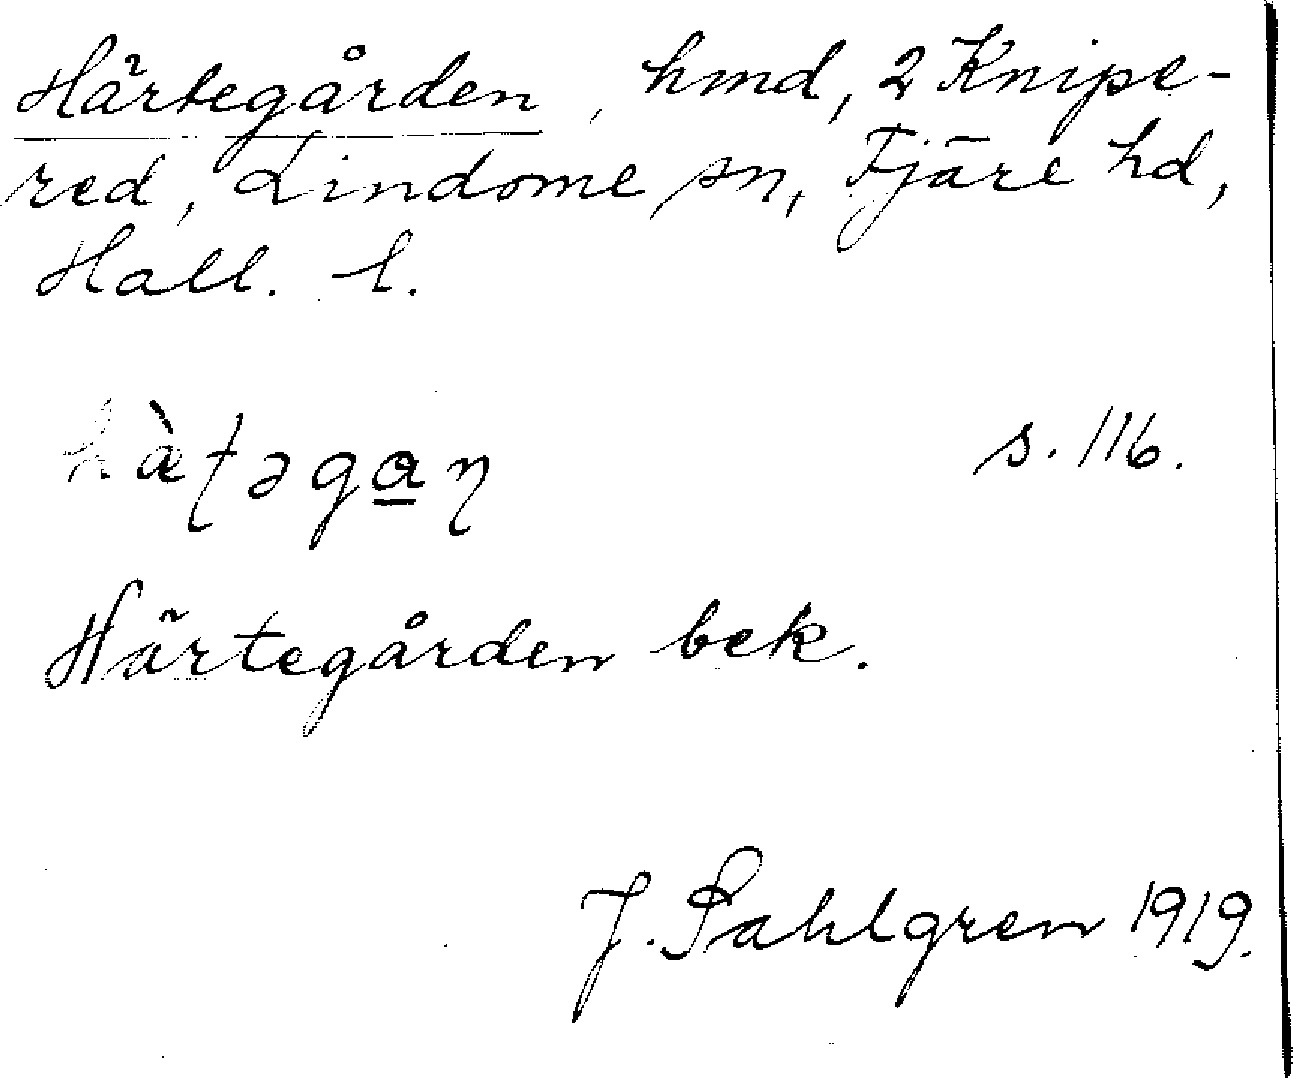 Härtegården, hmd, 2 Knipe-
red, Lindome sn, Fjäre hd,
Hall. l.
hæ̀ʈəga̲ɳ s. 116.
Härtegården bek.
J. Sahlgren 1919.